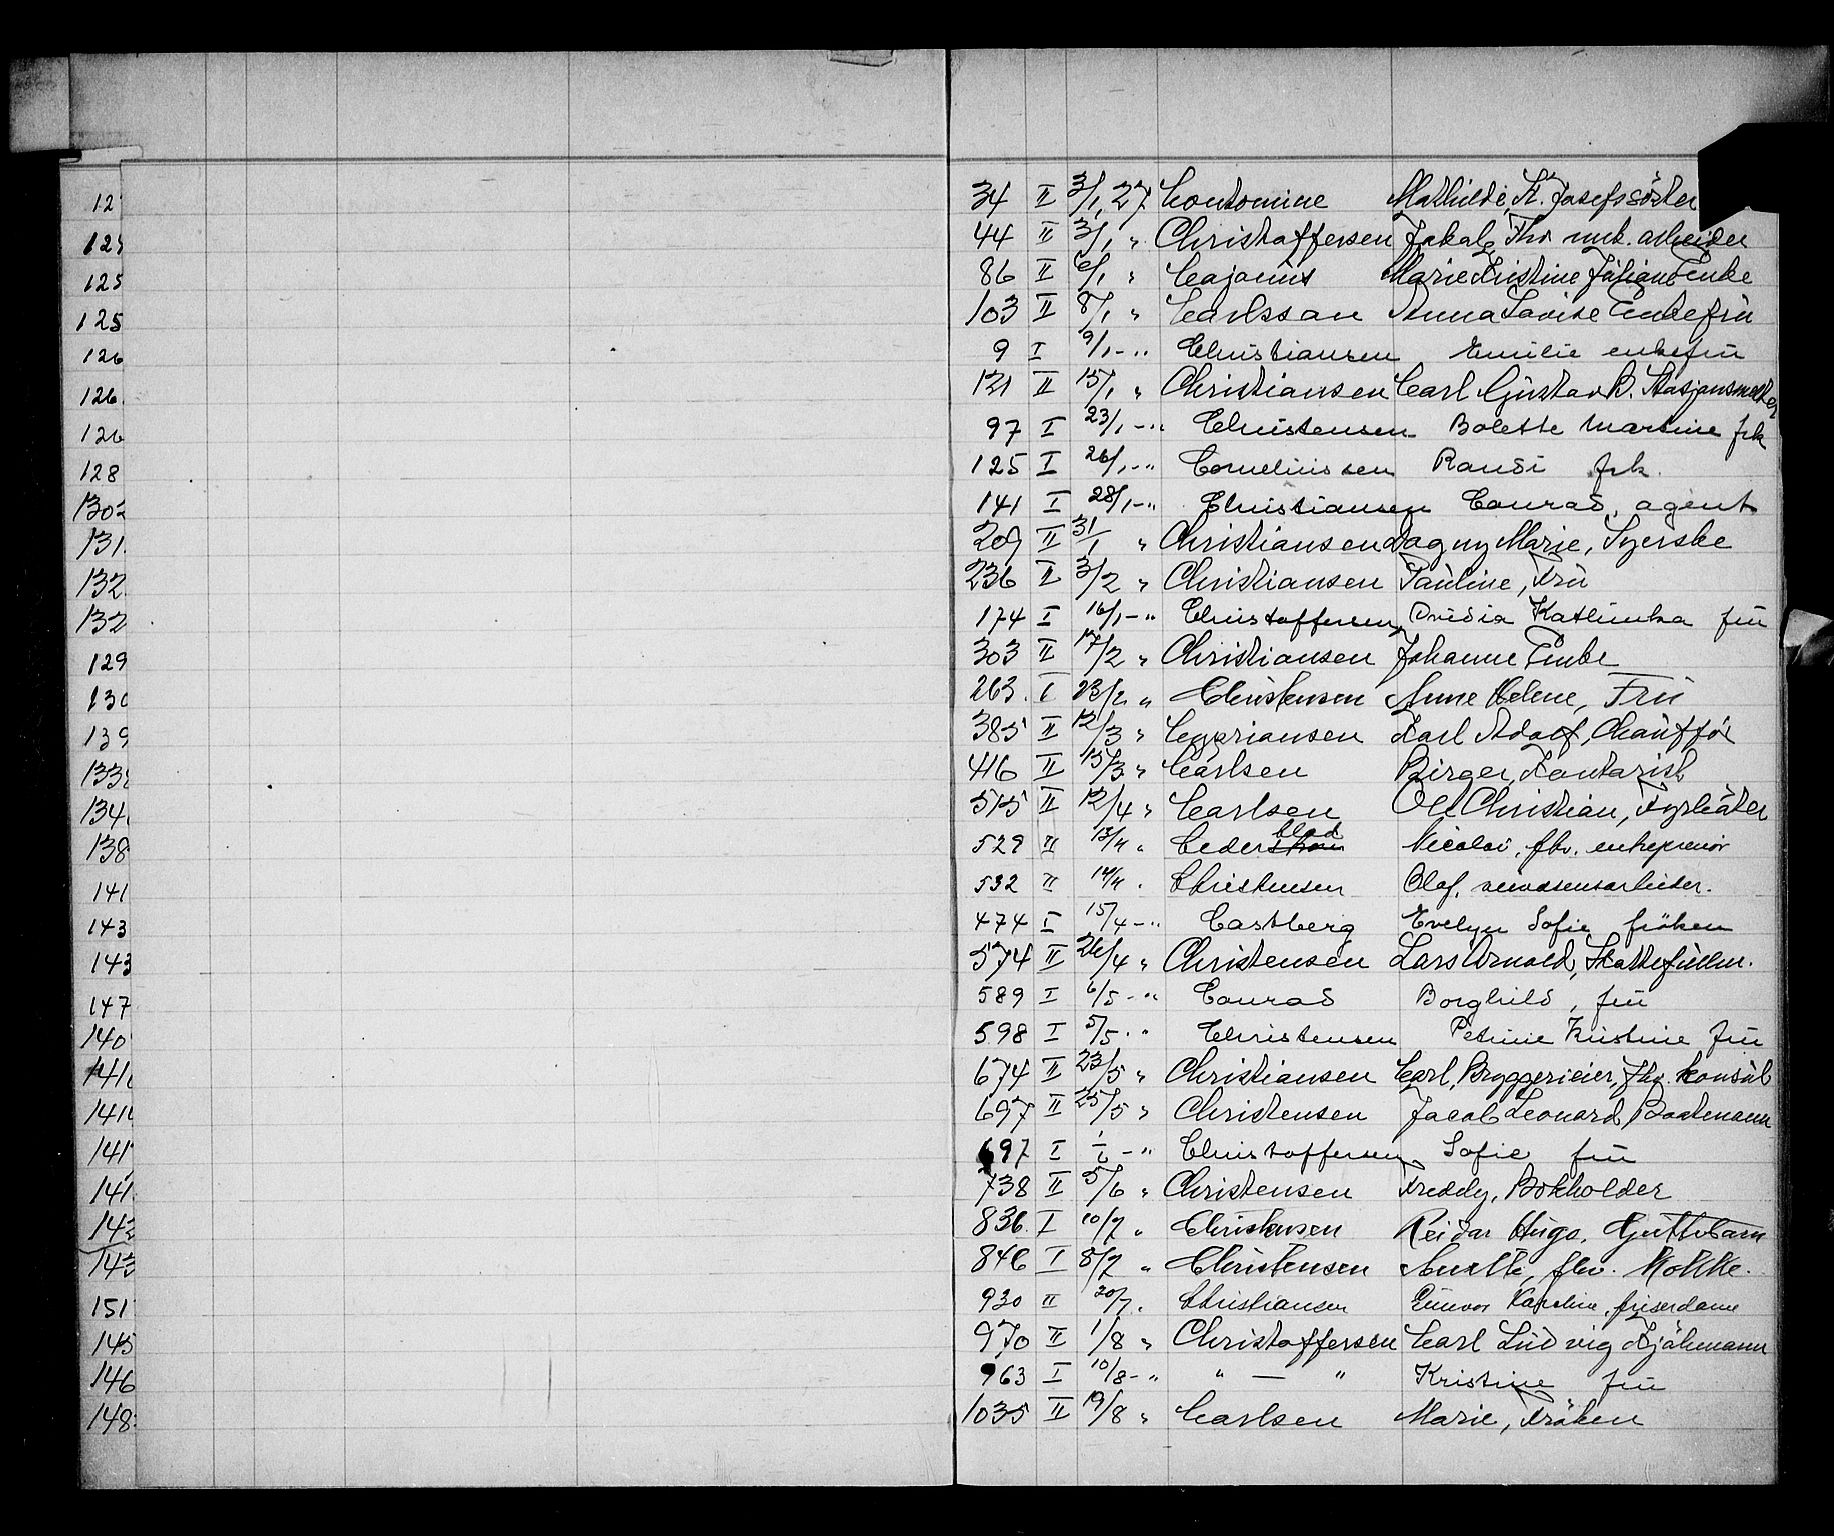 12
34 II 3/1, 27 Contomine Mathilde, St. Josefssöster
125 44 II 3/1 " Christoffersen Jakob, Fhv murarbeider
125 86 II 6/1 " Cajanus Marie Kristine Juliane Enke
125 103 II 8/1 " Carlsson Anna Lovise Enkefru
126 9 I 9/1 - " Christiansen Emilie enkefru
126 121 II 15/1 " Christiansen Carl Gustav B. Stasjonsmester
126 97 I 23/1 - " Christensen Bolette Martine frk
128 125 I 26/1 - " Corneliussen Randi frk.
1302 141 I 28/1 - " Christiansen Conrad, agent
131 209 II 31/1 " Christiansen Dagny Marie, Syerske
132 236 II 3/2 " Christiansen Pauline, Fru
132 174 I 16/1 - " Christoffersen, Ovidia Kathinka fru
129 303 II 17/2 " Christiansen Johanne Enke
130 263. I 23/2 " Christensen Anne Helene, Fru
139 385 II 12/3 " Cypriansen Karl Adolf, Chaufför
133 416 II 15/3 " Carlsen Birger, Kontorist
134 515 II 12/4 " Carlsen Ole Christian, Fyrböter
138 529 II 13/4 " Cederblad Nicolai, fhv. entreprenör
141 532 II 14/4 . Christensen Olof, renovasensarbeider.
143 474 I 15/4 - " Castberg Evelyn Sofie fröken
143 574 II 26/4 " Christensen Lars Arnold, Skattefullm.
147 589 I 6/5 - " Conrad Borghild, fru
140 598 I 5/5 . " Christensen Petrine Kristine fru
141 674 II 23/5 " Christiansen Carl, Bryggerieier, fhv. konsul
141 697 II 25/5 " Christensen Jacob Leonard, Baatsmann
141 697 I 1/6 - " Christoffersen, Sofie fru
141 738 II 5/6 " Christensen Freddy, Bokholder
142 836. I 10/7 " Christensen Reidar Hugo, Guttebarn
143 846 I 8/7 " Christensen Anette, fhv. Kokke.
151 930 II 20/7. Christiansen Gunvor Karoline, friserdame
145 970 II 1/8 " Christoffersen Carl Ludvig Sjömann
146 963 I 10/8 - " " — " Kristine fru
148 1035 II 19/8 " Carlsen Marie, Fröken